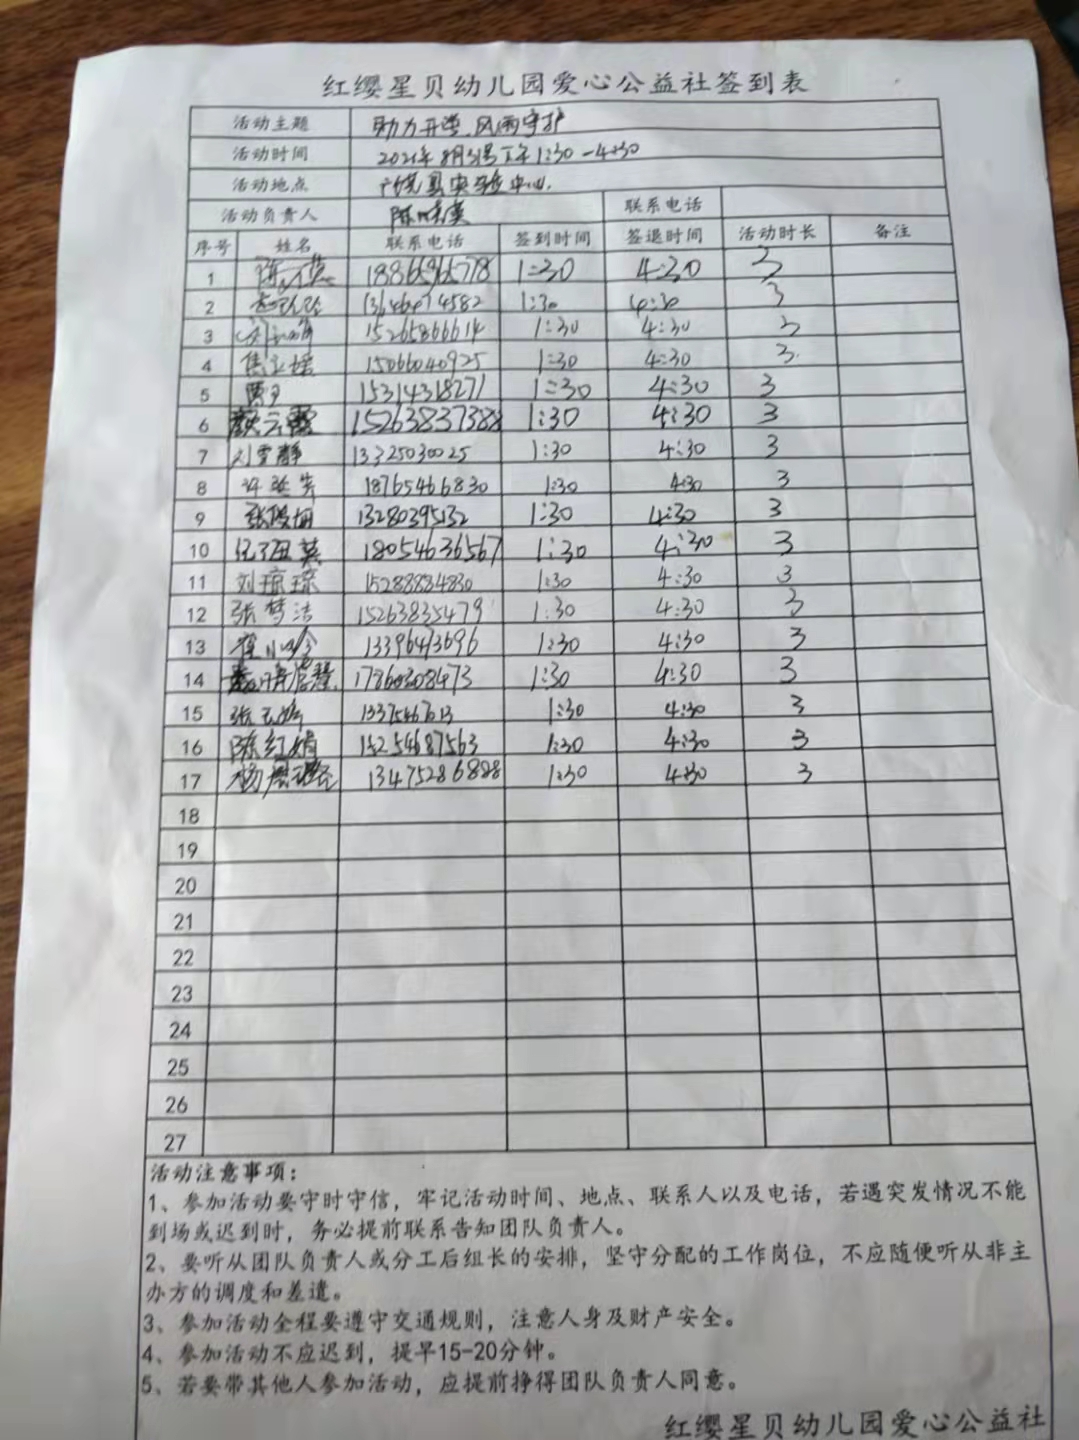 红缨星贝幼儿园爱心公益社签到表
活动主题 助力开学、风雨守护
活动时间 8月31号下午1:30-4:30
活动地点 广饶县实验中心.
活动负责人 陈 联系电话
序号 姓名 联系电话 签到时间 签退时间 活动时长 备注
1 1:30 4:30 3
2 1:30 4:30 3
3 1:30 4:30 3
4 15066040925 1:30 4:30 3
5 贾 15314318271 1:30 4:30 3
6 颜云霞 15263837388 1:30 4:30 3
7 刘雪静 13325030025 1:30 4:30 3
8 18765466830 1:30 4:30 3
9 13280395132 1:30 4:30 3
10 18054636567 1:30 4:30 3
11 刘琼琼 15288884830 1:30 4:30 3
12 张梦洁 15263835479 1:30 4:30 3
13 13396473696 1:30 4:30 3
14 17860308473 1:30 4:30 3
15 1:30 4:30 3
16 陈红娟 15254687563 1:30 4:30 3
17 13475286888 1:30 4:30 3
18
19
20
21
22
23
24
25
26
27
活动注意事项：
1、参加活动要守时守信，牢记活动时间、地点、联系人以及电话，若遇突发情况不能
到场或迟到时，务必提前联系告知团队负责人。
2、要听从团队负责人或分工后组长的安排，坚守分配的工作岗位，不应随便听从非主
办方的调度和差遣。
3、参加活动全程要遵守交通规则，注意人身及财产安全。
4、参加活动不应迟到，提早15-20分钟。
5、若要带其他人参加活动，应提前挣得团队负责人同意。
红缨星贝幼儿园爱心公益社